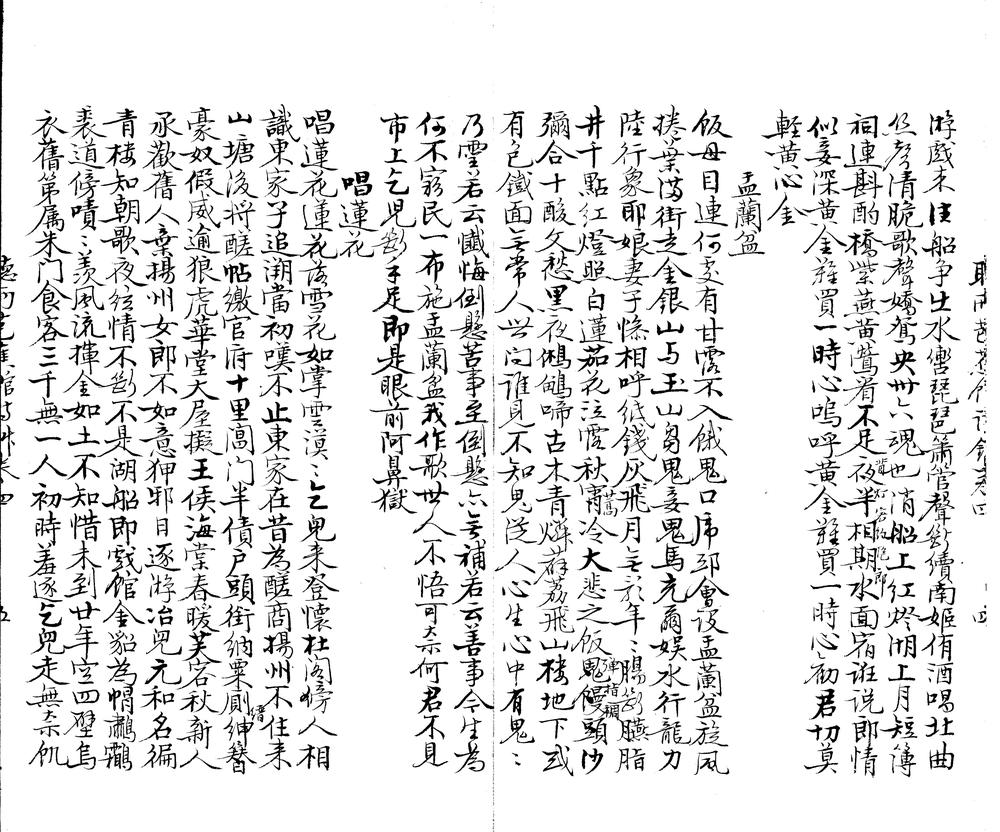 游戲未往船争出水窗琵琶簫管聲斷續南姬侑酒唱北曲
絲聲清脆歌聲嬌鴛央卅六魂也消船上紅燈湖上月短簿
祠連斟酌橋紫燕黄鶯看不足夜半相期水面宿誰説郎情
似妾深黄金難買一時心嗚呼黄金難買一時心勸君切莫
輕黄金
盂蘭盆
飯母目連何處有甘露不入餓鬼口虎邱會設盂蘭盆旋風
捲葉滿街走金銀山与玉山芻鬼妾鬼馬充爾娱水行龍力
陸行象耶娘妻子條相呼纸錢灰飛月無影年〻腸斷臙脂
井千點紅燈照白蓮茄花泣露秋宵冷大悲之飯鬼饅頭沙
彌合十酸文愁黑夜鵂鶹啼古木青燐薜荔飛山樓地下或
有包鐵面無常人世問誰見不知鬼從人心生心中有鬼〻
乃靈若云懺悔倒懸苦事至倒懸亦無補若云善事今生為
何不窮民一布施盂蘭盆我作歌世人不悟可奈何君不見
市上乞児斷手足即是眼前阿鼻獄
唱蓮花
唱蓮花蓮花落雪花如掌雲漠〻乞兒来登懷杜閣傍人相
識東家子追溯當初嘆不止東家在昔為醝商揚州不住来
山塘後將醝帖繳官府十里高门半債户頭銜納粟廁紳
豪奴假威逾狼虎華堂大屋擬王侯海棠春暖芙容秋新人
承歡舊人棄揚州女郎不如意狎邪日逐游冶兒元和名徧
青樓知朝歌夜絃情不斷不是湖船即戲館金貂為帽鸘
裘道傍嘖〻羡風流揮金如土不知惜未到廿年空四壁烏
衣舊第属朱门食客三千無一人初時羞逐乞兒走無柰飢